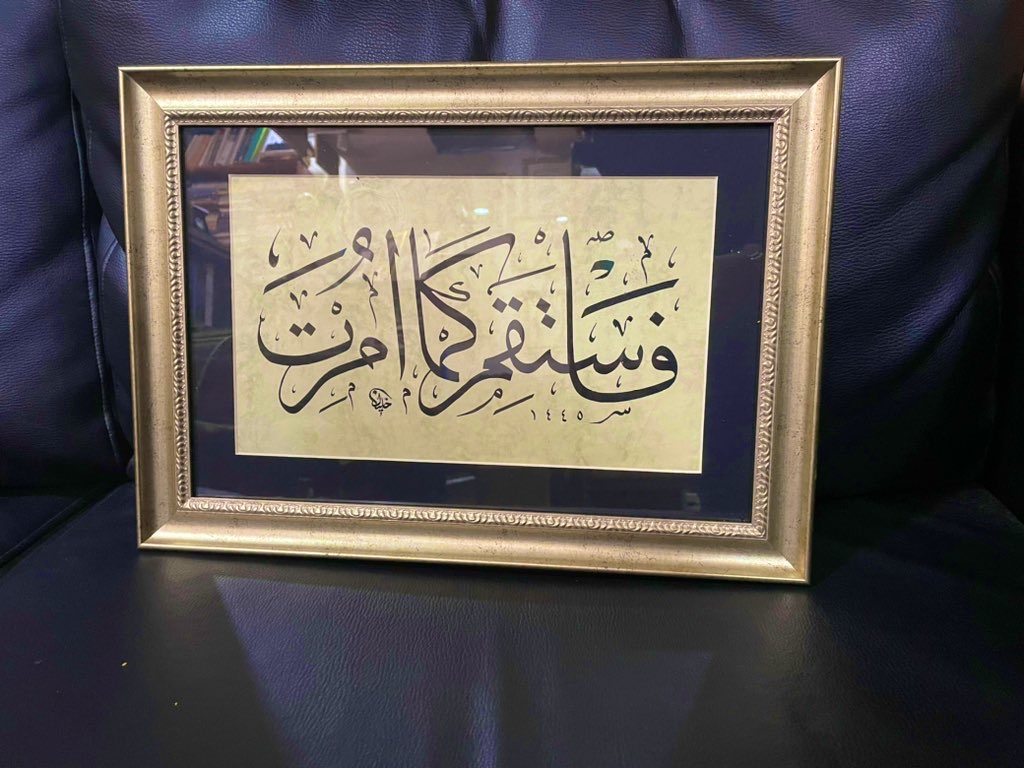 فَاسْتَقِمْ كَمَا اُمِرْتَ
١٤٤٥